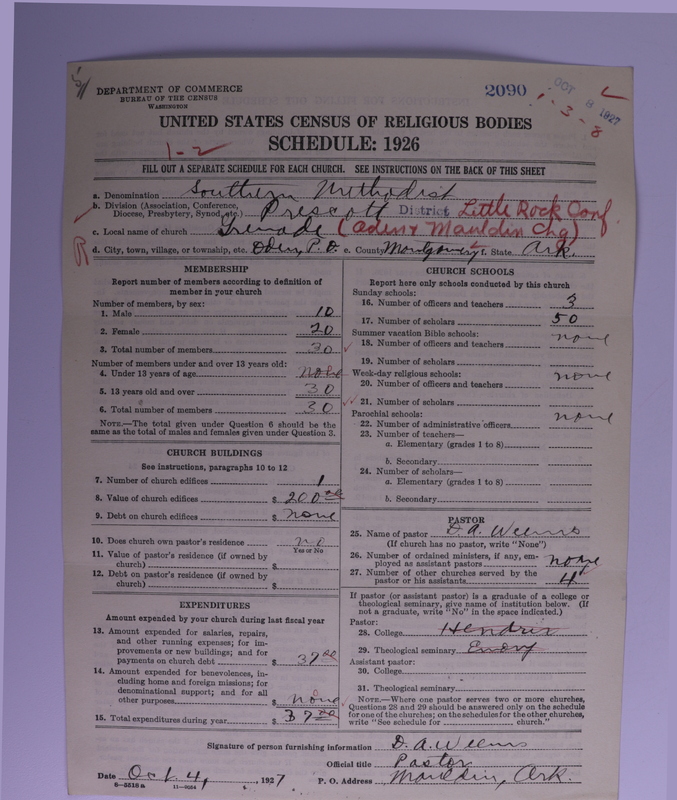 DEPARTMENT OF COMMERCE
BUREAU OF THE CENSUS
WASHINGTON
2090
OCT 8 1927
1-3-8
UNITED STATES CENSUS OF RELIGIOUS BODIES
SCHEDULE: 1926
1-2
FILL OUT A SEPARATE SCHEDULE FOR EACH CHURCH. SEE INSTRUCTIONS ON THE BACK OF THIS SHEET
a. Denomination Southern Methodist
b. Division (Association, Conference, Diocese, Presbytery, Synod, etc.) Prescott District Little Rock Conf.
c. Local name of church Grenade (Oden & Mauldin Chg)
d. City, town, village, or township, etc. Oden, P.O. e. County Montgomery f. State Ark.
MEMBERSHIP
Report number of members according to definition of
member in your church
Number of members, by sex:
1. Male 10
2. Female 20
3. Total number of members 30
Number of members under and over 13 years old:
4. Under 13 years of age none
5. 13 years old and over 30
6. Total number of members 30
NOTE.—The total given under Question 6 should be the
same as the total of males and females given under Question 3.
CHURCH BUILDINGS
See instructions, paragraphs 10 to 12
7. Number of church edifices 1
8. Value of church edifices $ 200.00
9. Debt on church edifices $ none
10. Does church own pastor's residence no
Yes or No
11. Value of pastor's residence (if owned by
church) $
12. Debt on pastor's residence (if owned by
church) $
EXPENDITURES
Amount expended by your church during last fiscal year
13. Amount expended for salaries, repairs,
and other running expenses; for im-
provements or new buildings; and for
payments on church debt $ 37.00
14. Amount expended for benevolences, in-
cluding home and foreign missions; for
denominational support; and for all
other purposes $ none
15. Total expenditures during year $ 37.00
CHURCH SCHOOLS
Report here only schools conducted by this church
Sunday schools:
16. Number of officers and teachers 3
17. Number of scholars 50
Summer vacation Bible schools: none
18. Number of officers and teachers
19. Number of scholars
Week-day religious schools: none
20. Number of officers and teachers
21. Number of scholars
Parochial schools: none
22. Number of administrative officers
23. Number of teachers—
a. Elementary (grades 1 to 8)
b. Secondary
24. Number of scholars—
a. Elementary (grades 1 to 8)
b. Secondary
PASTOR
25. Name of pastor D. A. Weems
(If church has no pastor, write "None")
26. Number of ordained ministers, if any, em-
ployed as assistant pastors none
27. Number of other churches served by the
pastor or his assistants 4
If pastor (or assistant pastor) is a graduate of a college or
theological seminary, give name of institution below. (If
not a graduate, write "No" in the space indicated.)
Pastor:
28. College Hendrix
29. Theological seminary Emory
Assistant pastor:
30. College
31. Theological seminary
NOTE.—Where one pastor serves two or more churches,
Questions 28 and 29 should be answered only on the schedule
for one of the churches; on the schedules for the other churches,
write "See schedule for church."
Signature of person furnishing information D. A. Weems
Official title Pastor
Date Oct. 4, 1927 P. O. Address Mauldin, Ark.
8—5516a 11—9054